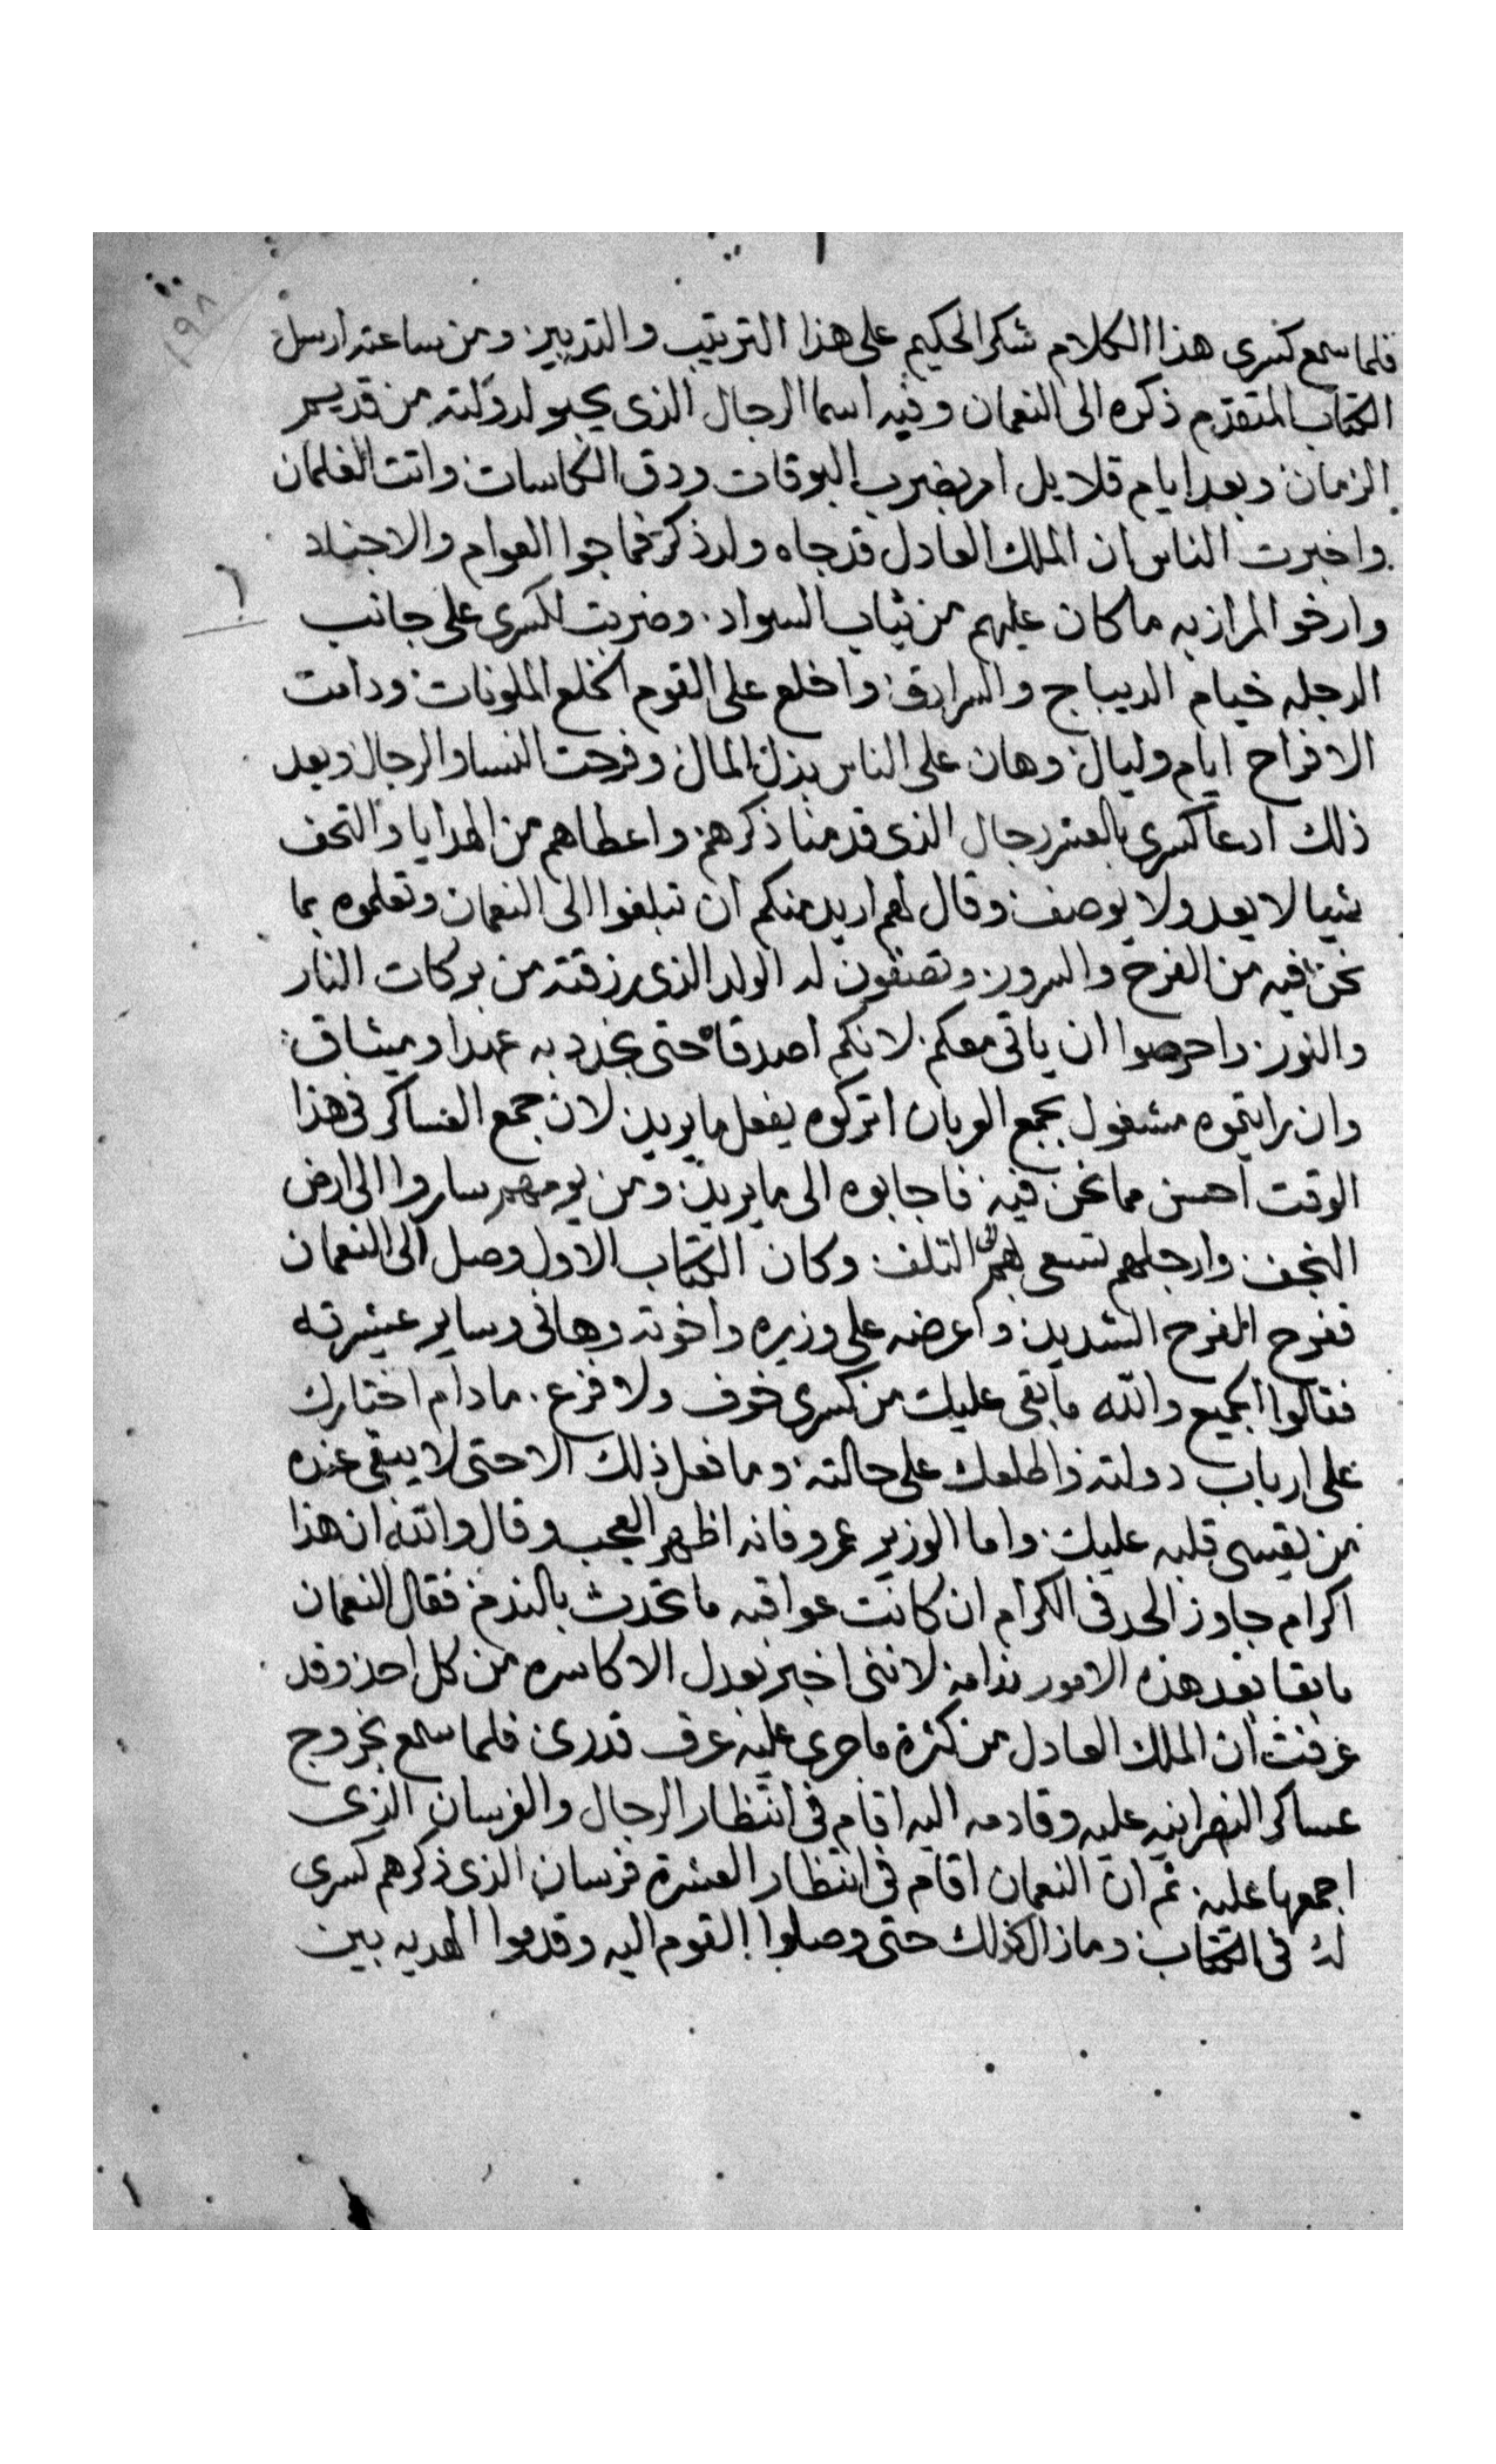 ١٩٨
فلما سمع كسرى هذا الكلام شكر الحكيم على هذا الترتيب والتدبير ومن ساعته ارسل
الكتاب المتقدم ذكره الى النعمان وفيه اسما الرجال الذى يحبو لدولته من قديم
الزمان وبعد ايام قلايل امر بضرب البوقات ودق الكاسات واتت الغلمان
واخبرت الناس ان الملك العادل قد جاه ولد ذكر فماجوا العوام والاجناد
وارخو المرازبه ما كان عليهم من ثياب السواد. وضربت لكسرى على جانب
الدجله خيام الديباج والسرادق واخلع على القوم الخلع الملونات ودامت
الافراح ايام وليال وهان على الناس بذل المال وفرحت النسا والرجال وبعد
ذلك ادعا كسرى بالعشر رجال الذى قدمنا ذكرهم واعطاهم من الهدايا والتحف
شيا لا يعد ولا يوصف وقال لهم اريد منكم ان تبلغوا الى النعمان وتعلموه بما
نحن فيه من الفرح والسرور وتصفون له الولد الذى رزقته من بركات النار
والنور واحرصوا ان ياتى معكم لانكم اصدقاه حتى نجدد به عهدا وميثاق
وان رايتموه مشغول بجمع العربان اتركوه يفعل ما يريد لان جمع العساكر فى هذا
الوقت احسن مما نحن فيه فاجابوه الى ما يريد ومن يومهم ساروا الى ارض
النجف وارجلهم تسعى بهم الى التلف وكان الكتاب الاول وصل الى النعمان
ففرح الفرح الشديد واعرضه على وزيره واخوته وهانى وساير عشيرته
فقالوا الجميع والله ما بقى عليك من كسرى خوف ولا فزع. ما دام اختارك
على ارباب دولته واطلعك على حالته وما فعل ذلك الا حتى لا يبقى عنده
من يقسى قلبه عليك واما الوزير عمرو فانه اظهر العجب وقال والله ان هذا
اكرام جاوز الحد فى الكرام ان كانت عواقبه ما تحدث بالندم فقال النعمان
ما بقا بعد هذه الامور ندامه لاننى اخبر بعدل الاكاسره من كل احد وقد
عرفت ان الملك العادل من كثرة ما جرى عليه عرف قدرى فلما سمع بخروج
عساكر النصرانيه عليه وقادمه اليه اقام فى انتظار الرجال والفرسان الذى
اجمعها عليه ثم ان النعمان اقام فى انتظار العشرة فرسان الذى ذكرهم كسرى
له فى الكتاب وما زال كذلك حتى وصلوا القوم اليه وقدموا الهديه بين